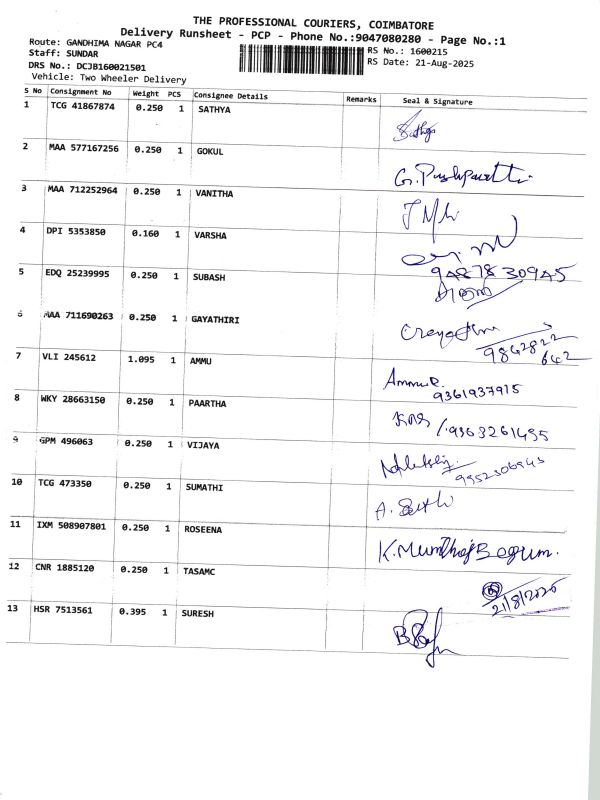 THE PROFESSIONAL COURIERS, COIMBATORE
Delivery Runsheet - PCP - Phone No.:9047080280 - Page No.:1
Route: GANDHIMA NAGAR PC4
RS No.: 1600215
Staff: SUNDAR
RS Date: 21-Aug-2025
DRS No.: DCJB160021501
Vehicle: Two Wheeler Delivery
S No Consignment No Weight PCS Consignee Details Remarks Seal & Signature
1 TCG 41867874 0.250 1 SATHYA
2 MAA 577167256 0.250 1 GOKUL
3 MAA 712252964 0.250 1 VANITHA
4 DPI 5353850 0.160 1 VARSHA
5 EDQ 25239995 0.250 1 SUBASH
6 MAA 711690263 0.250 1 GAYATHIRI
9842822
642
7 VLI 245612 1.095 1 AMMU
9361937915
8 WKY 28663150 0.250 1 PAARTHA
9363261435
9 GPM 496063 0.250 1 VIJAYA
10 TCG 473350 0.250 1 SUMATHI
11 IXM 508907801 0.250 1 ROSEENA K.Mumthaj Begum.
12 CNR 1885120 0.250 1 TASAMC
21/8/2025
13 HSR 7513561 0.395 1 SURESH